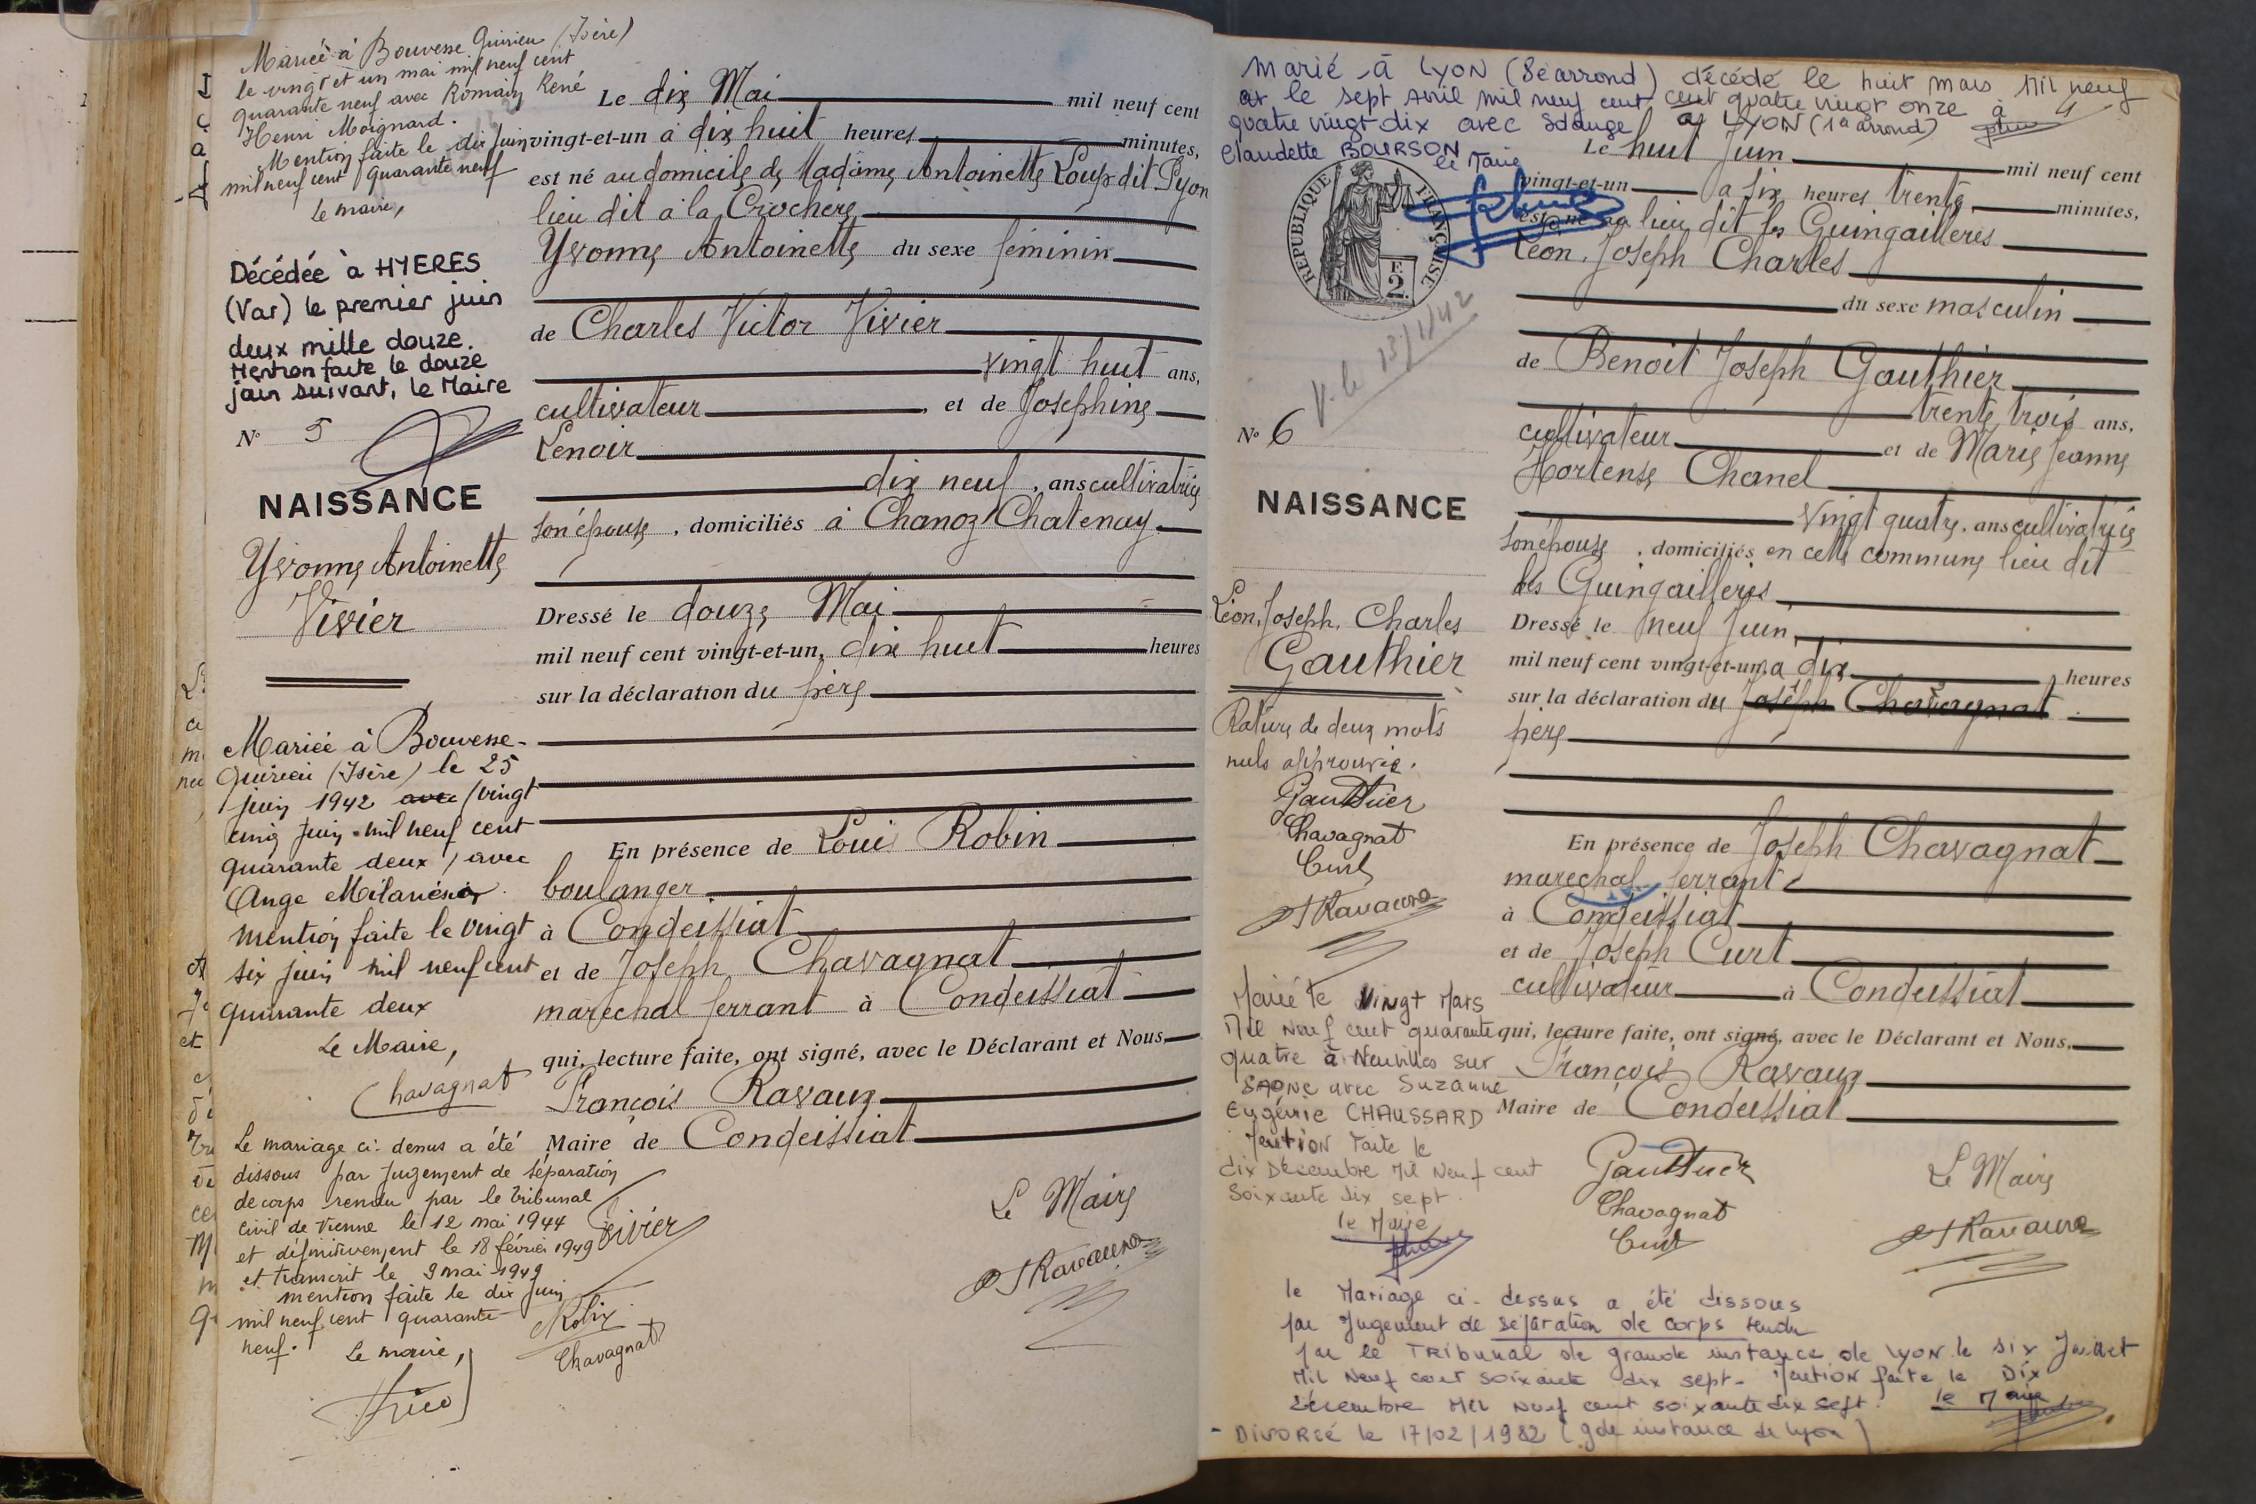 Mariée à Bouvesse Quirieu (Isère)
le vingt et un mai mil neuf cent
quarante neuf avec Romain René
Henri Moignard.
Mention faite le dix juin
mil neuf cent quarante neuf
Le maire,
Décédée à HYERES
(Var) le premier juin
deux mille douze.
Mention faite le douze
juin suivant, le Maire
N° 5
NAISSANCE
Yvonne Antoinette
Vivier
Mariée à Bouvesse-
Quirieu (Isère) le 25
juin 1942 avec (vingt
cinq juin mil neuf cent
quarante deux) avec
Ange
mention faite le vingt
six juin mil neuf cent
quarante deux
Le Maire,
Chavagnat
Le mariage ci-dessus a été
dissous par jugement de séparation
de corps rendu par le tribunal
civil de Vienne le 12 mai 1944
et définitivement le 18 février 1949
et transcrit le 9 mai 1949
mention faite le dix juin
mil neuf cent quarante
neuf. Le maire,
Le dix Mai mil neuf cent
vingt-et-un à dix huit heures minutes,
est né au domicile de Madame Antoinette Loup dit Lyon
lieu dit à la Crochere
Yvonne Antoinette du sexe féminin
de Charles Victor Vivier
vingt huit ans,
cultivateur, et de Joséphine
Lenoir
dix neuf, ans cultivatrice
son épouse, domiciliés à Chanoz Chatenay
Dressé le douze Mai
mil neuf cent vingt-et-un, dix huit heures
sur la déclaration du père
En présence de Louis Robin
boulanger
à Condeissiat
et de Joseph Chavagnat
maréchal ferrant à Condeissiat
qui, lecture faite, ont signé, avec le Déclarant et Nous,
François Ravaux
Maire de Condeissiat
Vivier
Robin
Chavagnat
Le Maire
Ravaux
Marié à LYON (8e arrond)
le sept avril mil neuf cent
quatre vingt dix avec Solange
Claudette BOURSON
le Maire
décédé le huit mars mil neuf
cent quatre vingt onze à
LYON (1e arrond)
REPUBLIQUE FRANÇAISE
F.
2.
V. le 13/1/42
N° 6
NAISSANCE
Léon, Joseph, Charles
Gauthier
Rature de deux mots
nuls approuvée.
Gauthier
Chavagnat
Curt
Ravaux
Marié le vingt Mars
Mil Neuf cent quarante
quatre à Neuville sur
SAONE avec Suzanne
Eugénie CHAUSSARD
Mention faite le
dix Décembre Mil Neuf cent
soixante dix sept.
le Maire
Le huit Juin mil neuf cent
vingt-et-un à six heures trente minutes,
est né au lieu dit les Guingailleres
Léon, Joseph Charles
du sexe masculin
de Benoit Joseph Gauthier
trente trois ans,
cultivateur et de Marie Jeanne
Hortense Chanel
vingt quatre, ans cultivatrice
son épouse, domiciliés en cette commune lieu dit
les Guingailleres
Dressé le neuf Juin,
mil neuf cent vingt-et-un, à dix heures
sur la déclaration du Joseph Chavagnat
père
En présence de Joseph Chavagnat
maréchal ferrant
à Condeissiat
et de Joseph Curt
cultivateur à Condeissiat
qui, lecture faite, ont signé, avec le Déclarant et Nous,
François Ravaux
Maire de Condeissiat
Gauthier
Chavagnat
Curt
Le Maire
Ravaux
le Mariage ci-dessus a été dissous
par Jugement de séparation de corps rendu
par le TRIBUNAL de grande instance de LYON le six Juillet
Mil Neuf cent soixante dix sept - Mention faite le Dix
Décembre Mil Neuf cent soixante dix sept. le Maire
- DIVORSÉ le 17/02/1982 (gde instance de Lyon)